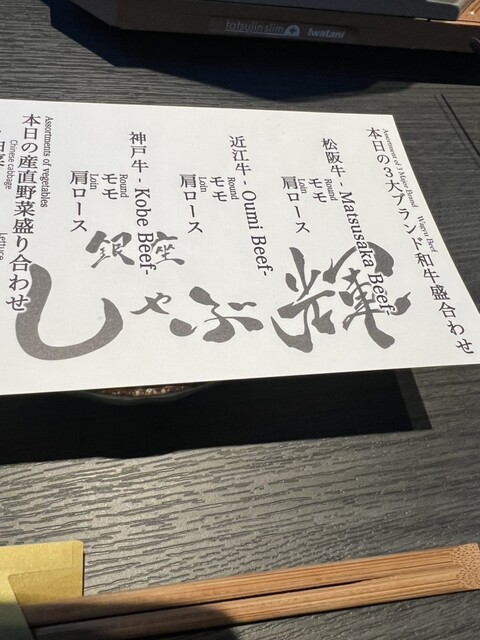 tatsujin slim Iwatani
Assortment of 3 Major Brand Wagyu Beef
本日の3大ブランド和牛盛合わせ
松阪牛 - Matsusaka Beef-
Round
モモ
Loin
肩ロース
近江牛 - Oumi Beef-
Round
モモ
Loin
肩ロース
神戸牛 - Kobe Beef-
Round
モモ
Loin
肩ロース
Assortments of vegetables
本日の産直野菜盛り合わせ
Chinese cabbage
Lettuce
銀座
しゃぶ輝